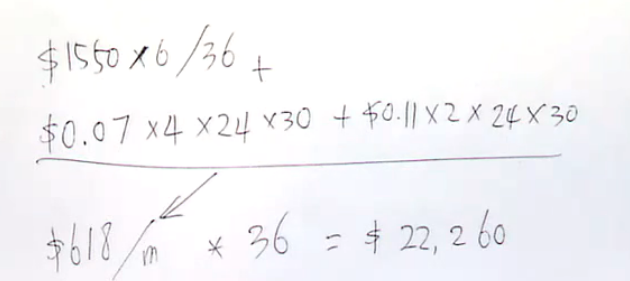 $1550 x 6 / 36 +
$0.07 x 4 x 24 x 30 + $0.11 x 2 x 24 x 30
$618 / m * 36 = $ 22,260